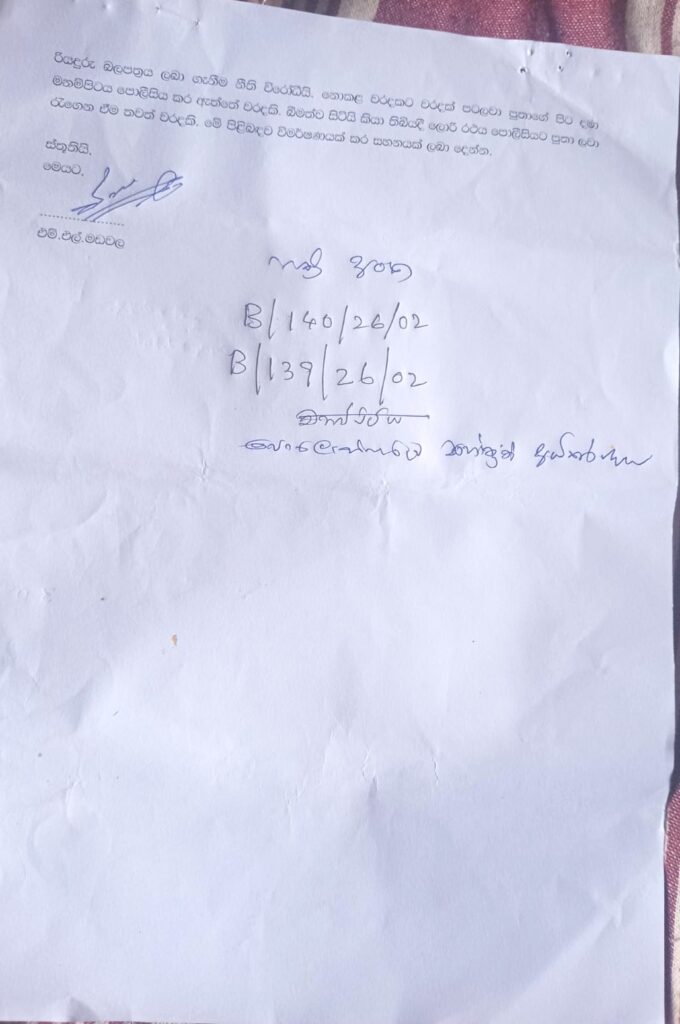 රියදුරු බලපත්‍රය ලබා ගැනීම නීති විරෝධියි. නොකළ වරදකට වරදක් පටලවා පුතාගේ පිට දමා
මනම්පිටය පොලීසිය කර ඇත්තේ වරදකි. බීමත්ව සිටියි කියා තිබියදී ලොරි රථය පොලීසියට පුතා ලවා
රැගෙන ඒම තවත් වරදකි. මේ පිළිබඳව විමර්ෂණයක් කර සහනයක් ලබා දෙන්න.
ස්තූතියි.
මෙයට,
එම්.එල්.මඩවල
නඩු අංක
B/140/26/02
B/139/26/02
පොලොන්නරුව මහේස්ත්‍රාත් අධිකරණය